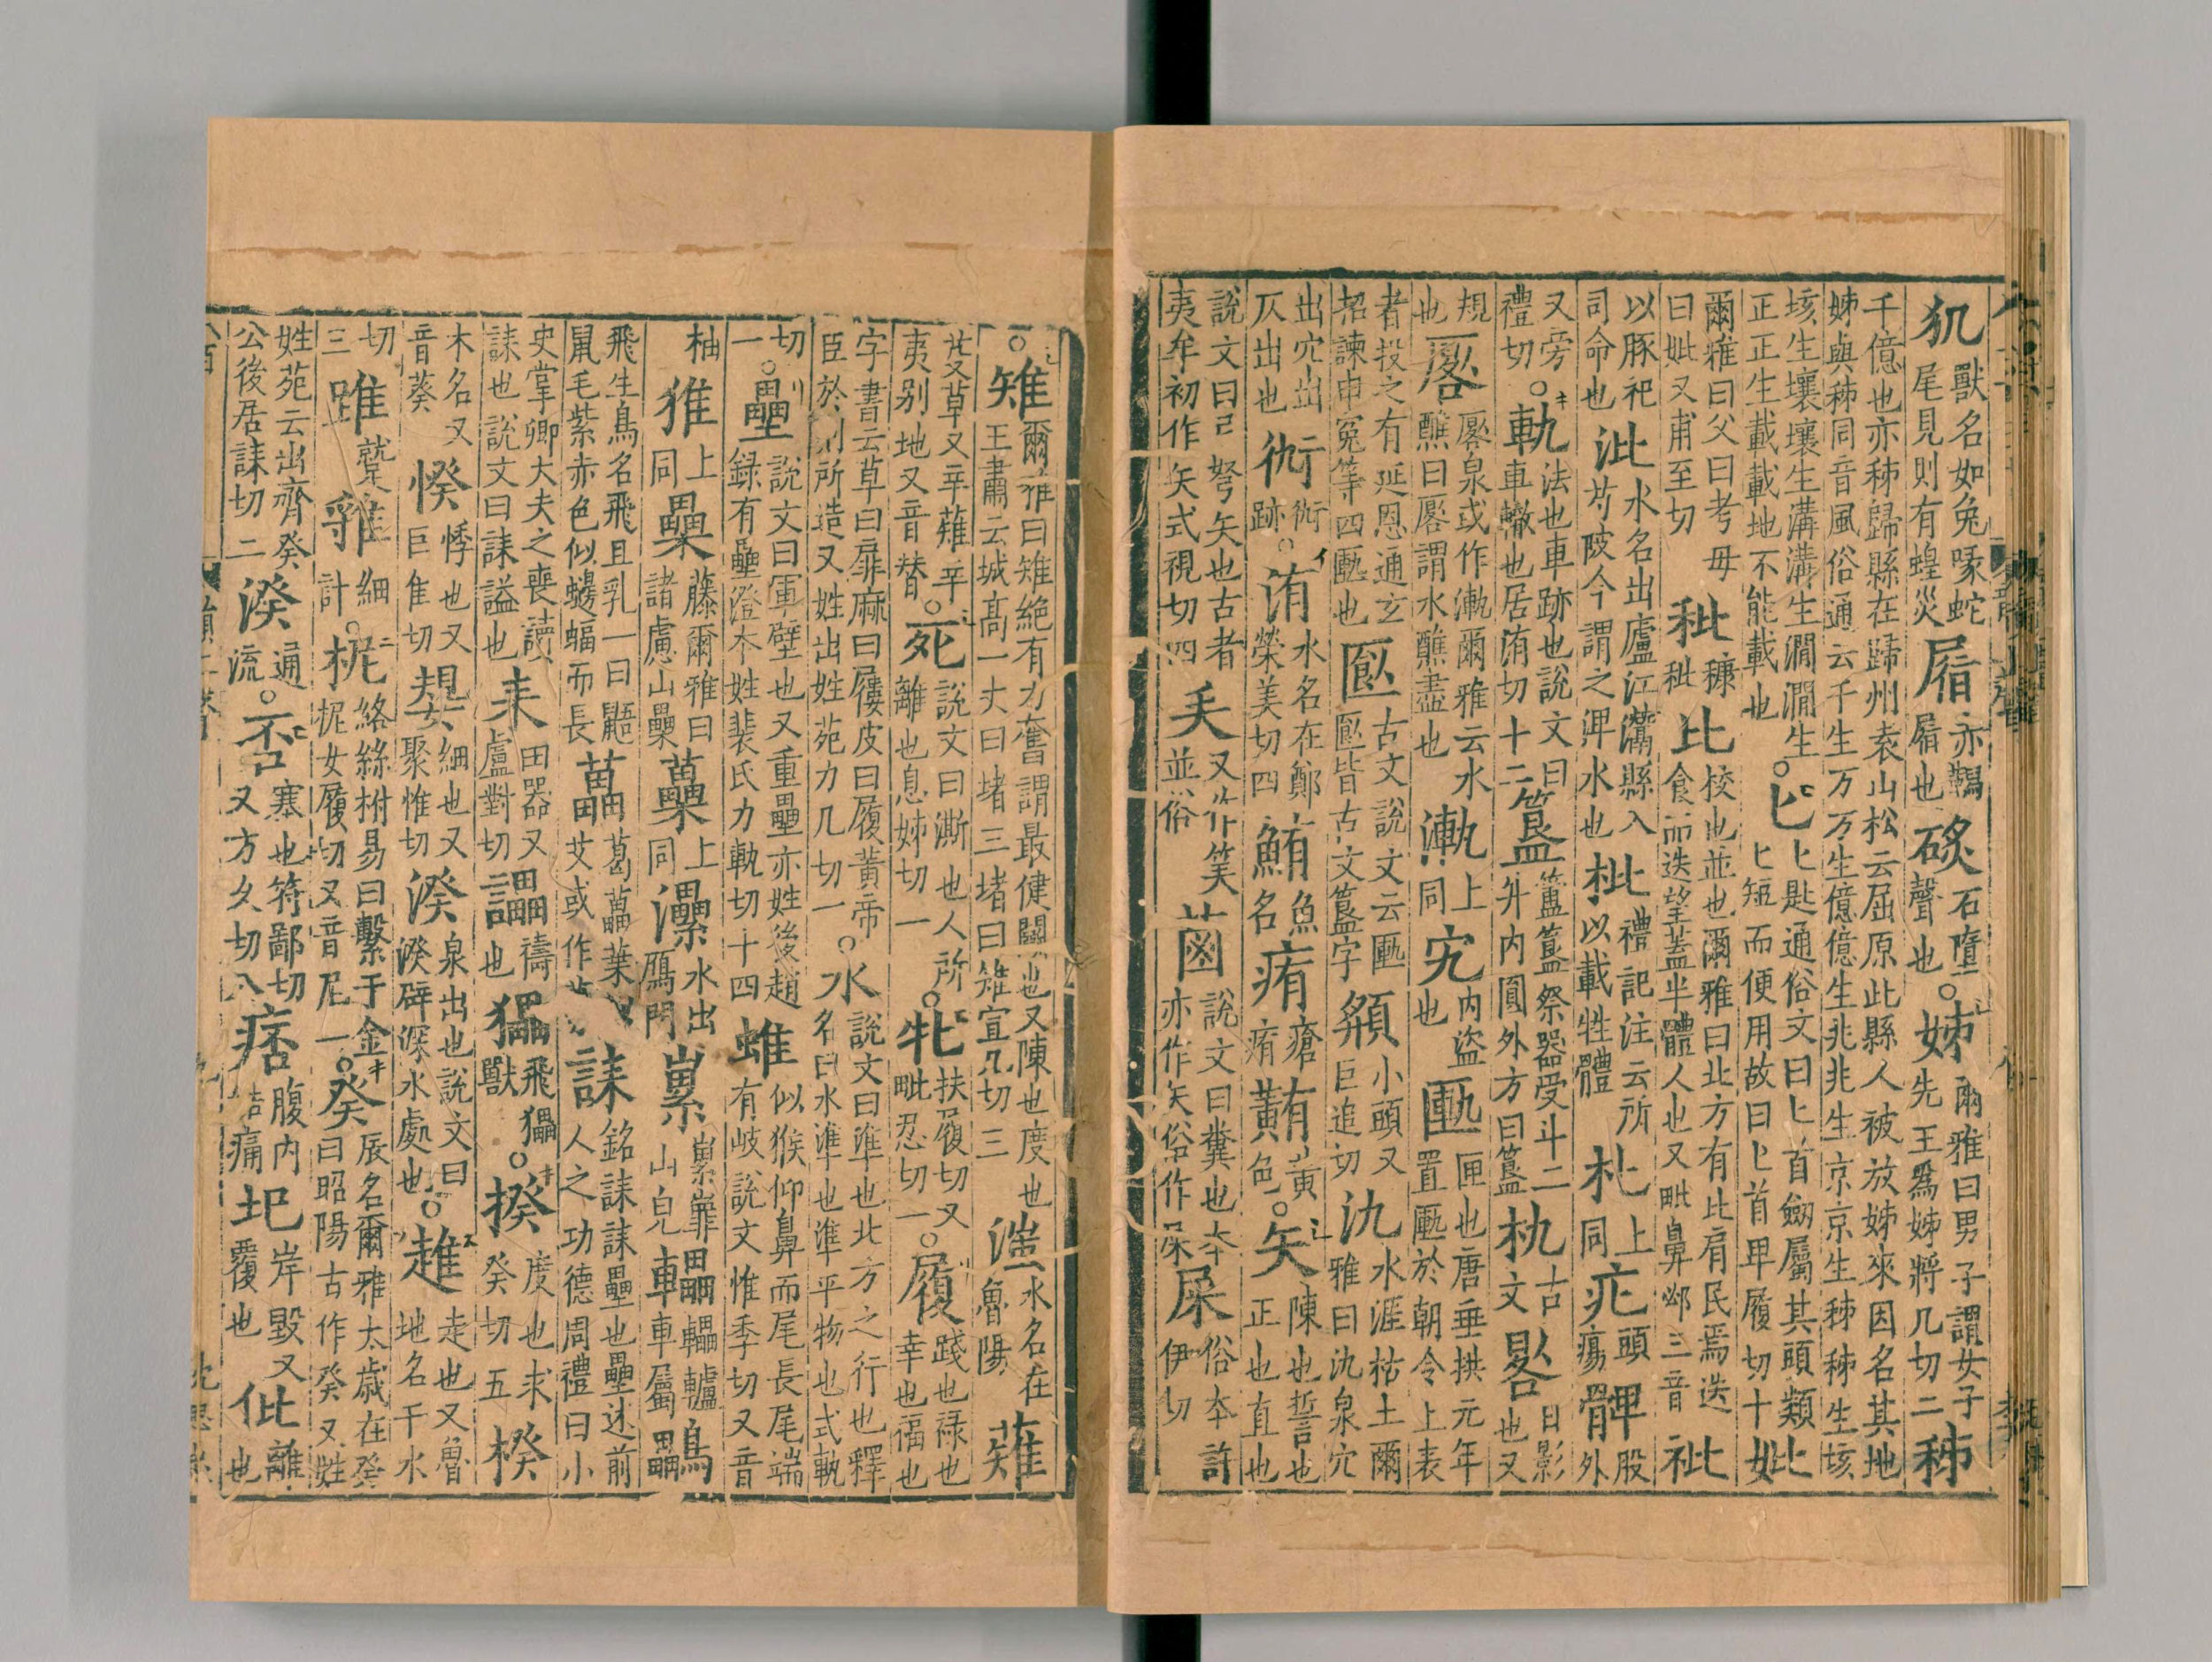 犰獸名如兔喙蛇尾見則有蝗災 亦鞨也 石墮聲也○姊爾雅曰男子謂女子先王爲姊將几切二秭
千億也亦秭歸縣在歸州袁山松云屈原此縣人被放姊來因名其地姊與秭同音風俗通云千生万万生億億生兆兆生京京生秭秭生垓
垓生壤壤生溝溝生澗澗生正正生載載地不能載也○匕匕匙通俗文曰匕首劒屬其頭類匕匕短而便用故曰匕首卑履切十妣
爾雅曰父曰考母曰妣又甫至切秕穅秕比校也並也爾雅曰北方有比肩民焉迭食而迭望蓋半體人也又毗鼻邲三音𥘔
以豚祀司命也沘水名出廬江灊縣入芍陂今謂之渒水也枇禮記注云所以載牲體朼上同疕頭瘍髀股外
又旁禮切○軌法也車跡也說文曰車轍也居洧切十二簋簠簋祭器受斗二升内圓外方曰簋朹古文晷日影也又
規也厬厬泉或作漸爾雅云水醮曰厬謂水醮盡也 上同宄内盜也匭匣也唐垂拱元年置匭於朝令上表
者投之有延恩通玄招諫申冤等四匭也 古文說文云匭皆古文簋字頯小頭又巨追切氿水涯枯土爾雅曰氿泉穴
出穴出仄出也 跡○洧水名在鄭榮美切四鮪魚名痏瘡痏䵋黃色○矢陳也誓也正也直也
說文曰弓弩矢也古者夷牟初作矢式視切四 又作笶並俗 說文曰糞也本亦作矢俗作屎屎俗本許伊切
○雉爾雅曰雉絕有力奮謂最健鬭也又陳也度也王肅云城高一丈曰堵三堵曰雉直几切三滍水名在魯陽薙
芟草又辛薙辛夷别地又音替○死說文曰澌也人所離也息姊切一○牝扶履切又毗忍切一○履踐也祿也幸也福也
字書云草曰扉麻曰屨皮曰履黃帝臣於則所造又姓出姓苑力几切一○水說文曰準也北方之行也釋名曰水準也準平物也式軌
切一○壘說文曰軍壁也又重壘亦姓後趙録有壘澄本姓裴氏力軌切十四蜼似猴仰鼻而尾長尾端有岐說文惟季切又音
柚 上同櫐藤爾雅曰諸慮山櫐蘽上同灅水出鴈門 山皃轠轠轤車屬鸓
飛生鳥名飛且乳一曰鼯鼠毛紫赤色似蝙蝠而長藟葛藟葉艾或作 誄銘誄誄壘也壘述前人之功德周禮曰小
史掌卿大夫之喪讀誄也說文曰誄謚也耒田器又盧對切讄禱也 飛獸○揆度也求癸切五楑
木名又音葵悸也又巨隹切嫢細也又聚惟切湀泉出也說文曰湀辟深水處也○趡走也又魯地名千水
切三 細計○柅絡絲柎易曰繫于金柅女履切又音尼一○癸辰名爾雅太歲在癸曰昭陽古作癸又姓
姓苑云出齊癸公後居誄切二湀通流○否塞也符鄙切又方久切八痞腹内結痛圮岸毀又覆也仳離也